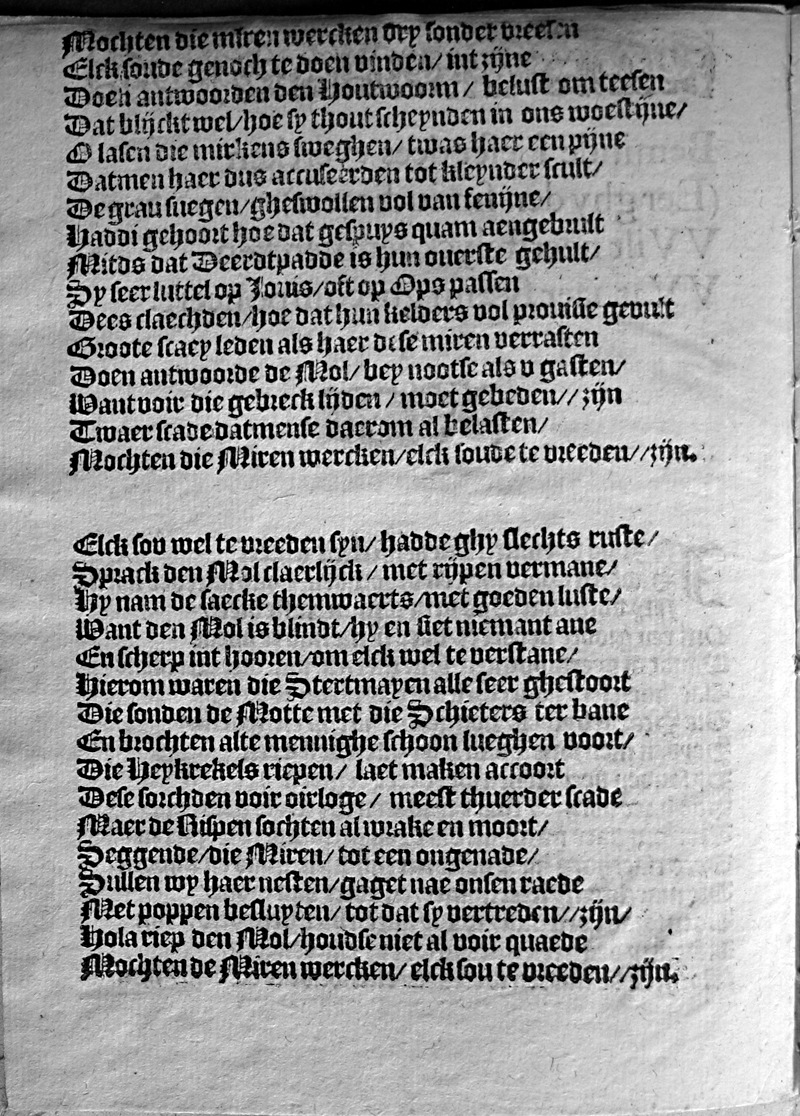 Mochten die miren wercken vry sonder vreesen
Elck soude genoch te doen vinden/ int zijne
Doen antwoorden den Houtwoorm/ belust om teesen
Dat blijckt wel/hoe sy thout scheynden in ons woestijne/
O lasen die mirkens sweghen/ twas haer een pijne
Datmen haer dus accuseerden tot kleynder scult/
De grau suegen/gheswollen vol van fenijne/
Haddi gehoort hoe dat gespuys quam aengebrult
Mitds dat Deerdtpadde is hun ouerste gehult/
Sy seer luttel op Jouis/oft op Ops passen
Dees claechden/hoe dat hun kelders vol prouisie geuult
Groote scaey leden als haer dese miren verrasten
Doen antwoorde de Mol/ bey nootse als v gasten/
Want voir die gebreck lijden/ moet gebeden//zijn
Twaer scade datmense daerom al belasten/
Mochten die Miren wercken/elck soude te vreeden//zijn.

Elck sou wel te vreeden syn/ hadde ghy slechts ruste/
Sprack den Mol claerlijck/ met rijpen vermane/
Hy nam de saecke themwaerts/met goeden luste/
Want den Mol is blindt/hy en siet niemant ane
En scherp int hooren/om elck wel te verstane/
Hierom waren die Stertmayen alle seer ghestoort
Die sonden de Motte met die Schieters ter bane
En brochten alte mennighe schoon lueghen voort/
Die Heykrekels riepen/ laet maken accoort
Dese sorchden voir oirloge/ meest thuerder scade
Maer de Rispen sochten al wrake en moort/
Seggende/die Miren/ tot een ongenade/
Sullen wy haer nesten/gaget nae onsen raede
Met poppen besluyten/ tot dat sy vertreden//zijn/
Hola riep den Mol/houdse niet al voir quaede
Mochten de Miren wercken/ elck sou te vreeden//zijn.